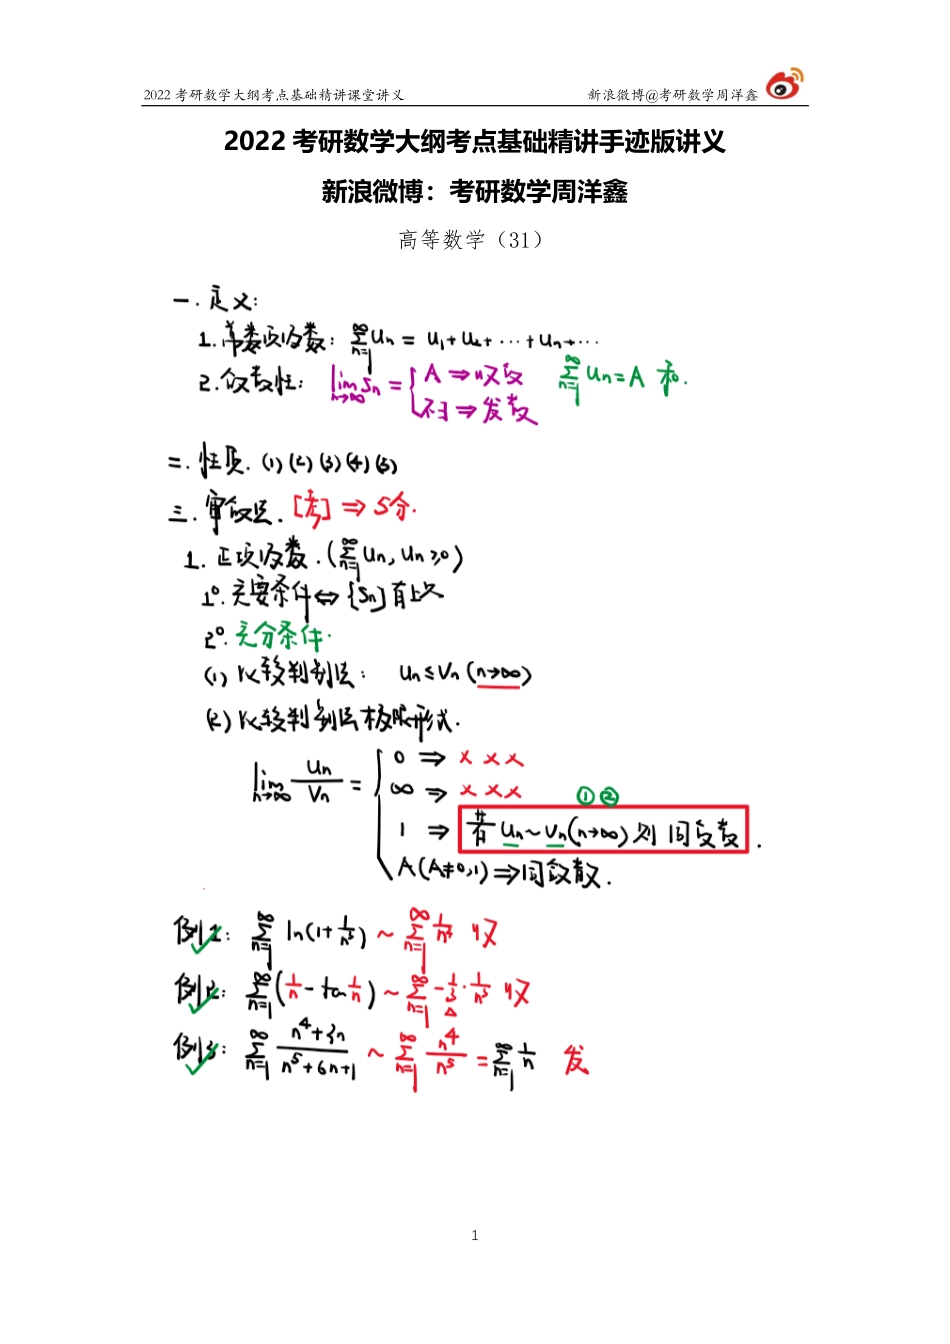 2022 考研数学大纲考点基础精讲课堂讲义 新浪微博@考研数学周洋鑫
2022 考研数学大纲考点基础精讲手迹版讲义
新浪微博：考研数学周洋鑫
高等数学（31）
一. 定义:
1. 常数项级数: ∑_{n=1}^{∞} Un = U₁+U₂+⋯+Un+⋯
2. 敛散性: lim_{n→∞} Sn = { A ⇒ 收敛 ∑_{n=1}^{∞} Un=A 和.
不∃ ⇒ 发散
二. 性质. (1) (2) (3) (4) (5)
三. 审敛法. [考] ⇒ 5分.
1. 正项级数. (∑_{n=1}^{∞} Un, Un≥0)
1°. 充要条件 ⇔ {Sn}有上界
2°. 充分条件.
(1) 比较判别法: Un≤Vn (n→∞)
(2) 比较判别法极限形式.
lim_{n→∞} Un/Vn = { 0 ⇒ × × ×
∞ ⇒ × × × ① ②
1 ⇒ 若 Un~Vn(n→∞) 则 同敛散.
A(A≠0,1) ⇒ 同敛散.
例1: ∑_{n=1}^{∞} ln(1+1/n³) ~ ∑_{n=1}^{∞} 1/n³ 收
例2: ∑_{n=1}^{∞} (1/n - tan 1/n) ~ ∑_{n=1}^{∞} -1/3·1/n³ 收
例3: ∑_{n=1}^{∞} (n⁴+3n)/(n⁵+6n+1) ~ ∑_{n=1}^{∞} n⁴/n⁵ = ∑_{n=1}^{∞} 1/n 发
1